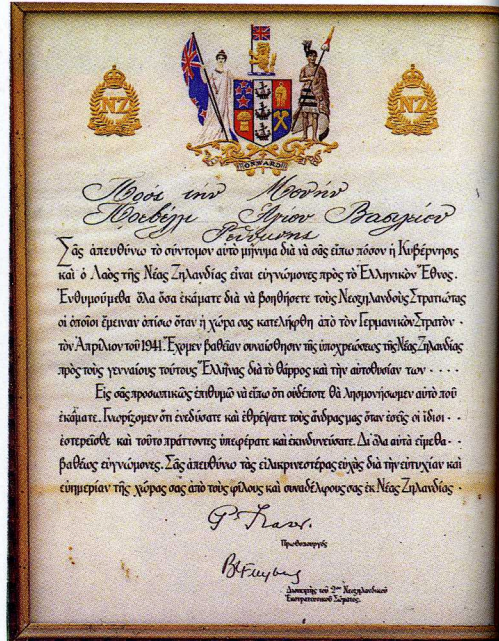 NZ
NZ
ONWARD
Πρός τήν Μονήν
Πρεβέλι Ἁγίου Βασιλείου
Ρεθύμνης
Σᾶς ἀπευθύνω τὸ σύντομον αὐτὸ μήνυμα διὰ νὰ σᾶς εἴπω πόσον ἡ Κυβέρνησις
καὶ ὁ Λαὸς τῆς Νέας Ζηλανδίας εἶναι εὐγνώμονες πρὸς τὸ Ἑλληνικὸν Ἔθνος.
Ἐνθυμούμεθα ὅλα ὅσα ἐκάματε διὰ νὰ βοηθήσετε τοὺς Νεοζηλανδοὺς Στρατιώτας
οἱ ὁποῖοι ἔμειναν ὀπίσω ὅταν ἡ χώρα σας κατελήφθη ἀπὸ τὸν Γερμανικὸν Στρατὸν
τὸν Ἀπρίλιον τοῦ 1941. Ἔχομεν βαθεῖαν συναίσθησιν τῆς ὑποχρεώσεως τῆς Νέας Ζηλανδίας
πρὸς τοὺς γενναίους τούτους Ἕλληνας διὰ τὸ θάρρος καὶ τὴν αὐτοθυσίαν των
Εἰς σᾶς προσωπικῶς ἐπιθυμῶ νὰ εἴπω ὅτι οὐδέποτε θὰ λησμονήσωμεν αὐτὸ ποῦ
ἐκάματε. Γνωρίζομεν ὅτι ἐνεδύσατε καὶ ἐθρέψατε τοὺς ἄνδρας μας ὅταν ἐσεῖς οἱ ἴδιοι
ἐστερεῖσθε καὶ τοῦτο πράττοντες ὑπεφέρατε καὶ ἐκινδυνεύσατε. Δι' ὅλα αὐτὰ εἴμεθα
βαθέως εὐγνώμονες. Σᾶς ἀπευθύνω τὰς εἰλικρινεστέρας εὐχὰς διὰ τὴν εὐτυχίαν καὶ
εὐημερίαν τῆς χώρας σας ἀπὸ τοὺς φίλους καὶ συναδέλφους σας ἐκ Νέας Ζηλανδίας
P. Fraser.
Πρωθυπουργός
B C Freyberg
Διοικητὴς τοῦ 2ου Νεοζηλανδικοῦ
Ἐκστρατευτικοῦ Σώματος.